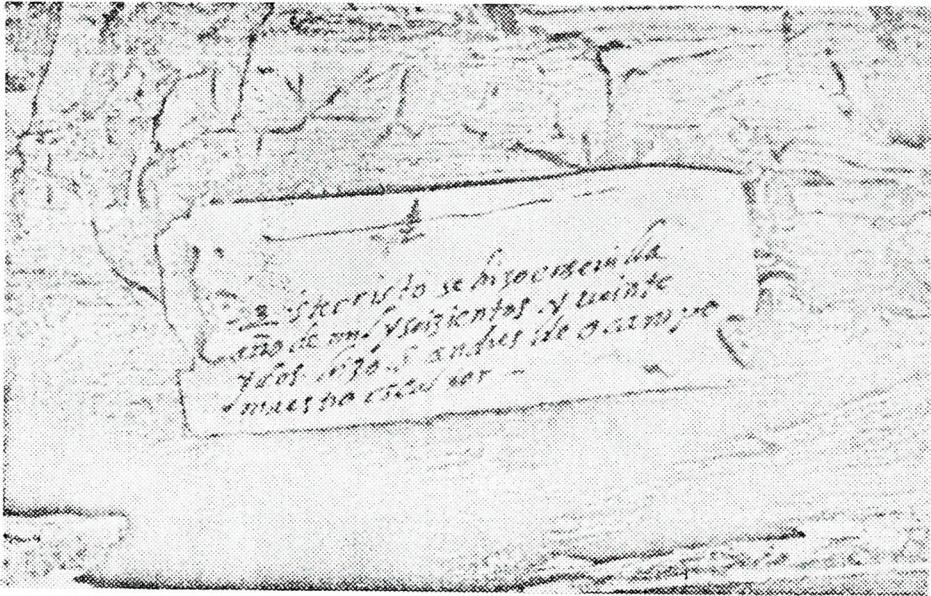 Este cristo se hizo en sevilla
año de mil y seizientos y veinte
y dos. hizolo andres de ocampo
maestro escultor